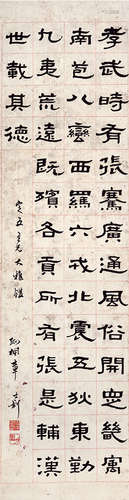 孝武時有張騫廣通風俗開定畿寓
南苞八蠻西羈六戎北震五狄東勤
九夷荒遠既殯各貢所有張是輔漢
世載其德
定五吾兄大雅鑒
孤桐章士釗